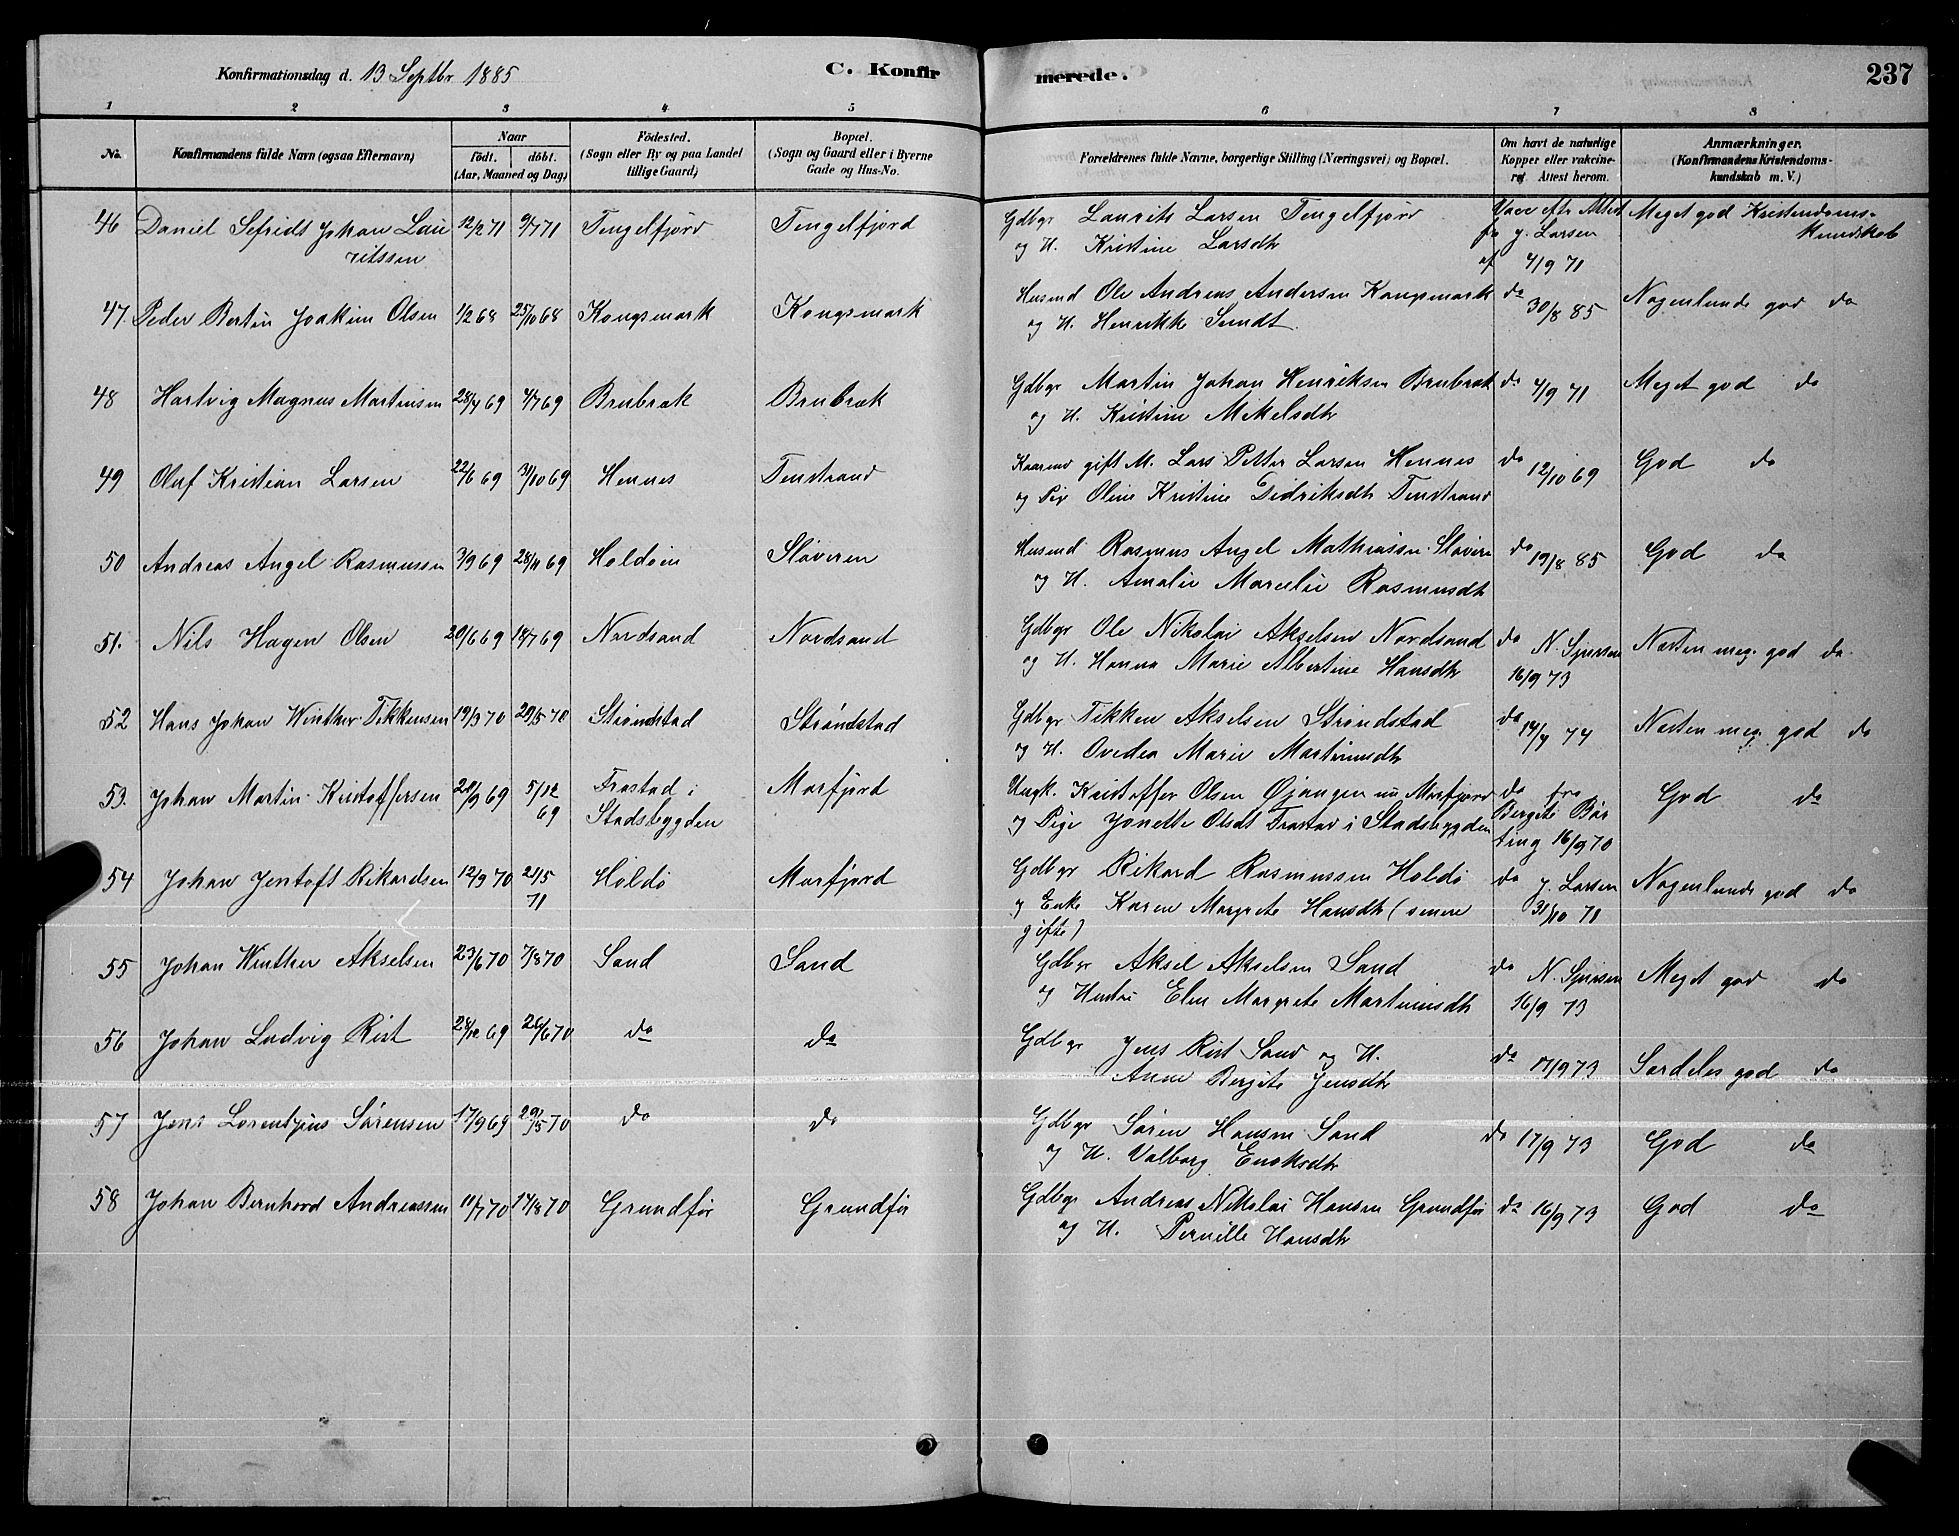 Konfirmationsdag d. 13 Septbr 1885
C. Konfirmerede.
237
1 2 3 4 5 6 7 8
No. Konfirmandens fulde Navn (ogsaa Efternavn) Naar födt. döbt. (Aar, Maaned og Dag) Födested. (Sogn eller By og paa Landet tillige Gaard) Bopæl. (Sogn og Gaard eller i Byerne Gade og Hus-No. Forældrenes fulde Navne, borgerlige Stilling (Næringsvei) og Bopæl. Om havt de naturlige Kopper eller vakcineret. Attest herom. Anmærkninger. (Konfirmandens Kristendomskundskab m. V.)
46 Daniel Sefrids Johan Lau 12/2 71 9/7 71 Tengelfjord Tengelfjord Gdbgr Laurits Larsen Tengelfjord Vacc eftr Attest Meget god Kristendoms-
ritssen og H. Kristine Larsdtr fra J. Larsen Kundskab
af 4/9 71
47. Peder Bertin Joakim Olsen 1/2 68 25/10 68 Kongsmark Kongsmark Husmd Ole Andreas Andersen Kongsmark do 30/8 85 Nogenlunde god do
og H. Henrikke Sundt.
48 Hartvig Magnus Martinsen 28/4 69 4/7 69 Brubræk Brubræk Gdbgr Martin Johan Henriksen Brubræk do 4/9 71 Meget god do
og H. Kristine Mekelsdtr
49 Oluf Kristian Larsen 22/6 69 31/10 69 Hennes Tenstrand gift M. Lars Petter Larsen Hennes do 12/10 69 God do
og Pige Oline Kristine Didriksdtr Tenstrand
50 Andreas Angel Rasmussen 3/9 69 28/11 69 Holdøen Sløveren Husmd Rasmus Angel Mathiassen Sløveren do 19/8 85 God do
og H. Amalie Marselie Rasmusdtr
51. Nils Hagen Olsen 20/6 69 18/7 69 Nordsand Nordsand Gdbgr Ole Nikolai Akselsen Nordsand do N. Sjursen Næsten meg. god do.
og H. Hanna Marie Albertine Hansdtr 16/9 73
52 Hans Johan Winther Tikkensen 19/3 70 29/5 70 Strøndstad Strøndstad Gdbgr Tikken Akselsen Strøndstad do 14/7 74 Næsten meg. god do
og H. Ovedea Marie Martinusdtr
53. Johan Martin Kristoffersen 20/9 69 5/12 69 Frastad i Stadsbygden Morfjord Ungk. Kristoffer Olsen Øjangen nu Morfjord do fra God do
og Pige Jonette Olsdt Frastad i Stadsbygden Bergete Bør
ting 16/9 70
54 Johan Jentoft Rikardsen 12/9 70 21/5 71 Holdø Morfjord Gdbgr Rikard Rasmussen Holdø do J. Larsen Nogenlunde god do
og Enke Karen Margrete Hansdtr (senere 31/10 71
gifte)
55 Johan Winther Akselsen 23/6 70 7/8 70 Sand Sand Gdbgr Aksel Akselsen Sand do N. Sjursen Meget god do
og Hustru Elen Margrete Martinusdtr 16/9 73
56 Johan Ludvig Rist 28/12 69 26/6 70 do do Gdbgr Jens Rist Sand og H. do 17/9 73 Særdeles god do
Anne Bergite Jensdtr
57 Jens Lorentzius Sørensen 17/9 69 29/5 70 do do Gdbgr Søren Hansen Sand do 17/9 73 God do
og H. Valborg Enoksdtr
58 Johan Bernhard Andreassen 11/7 70 14/8 70 Grundfør Grundfør Gdbgr Andreas Nikolai Hansen Grundfør do 16/9 73 God do
og H. Pernille Hansdtr